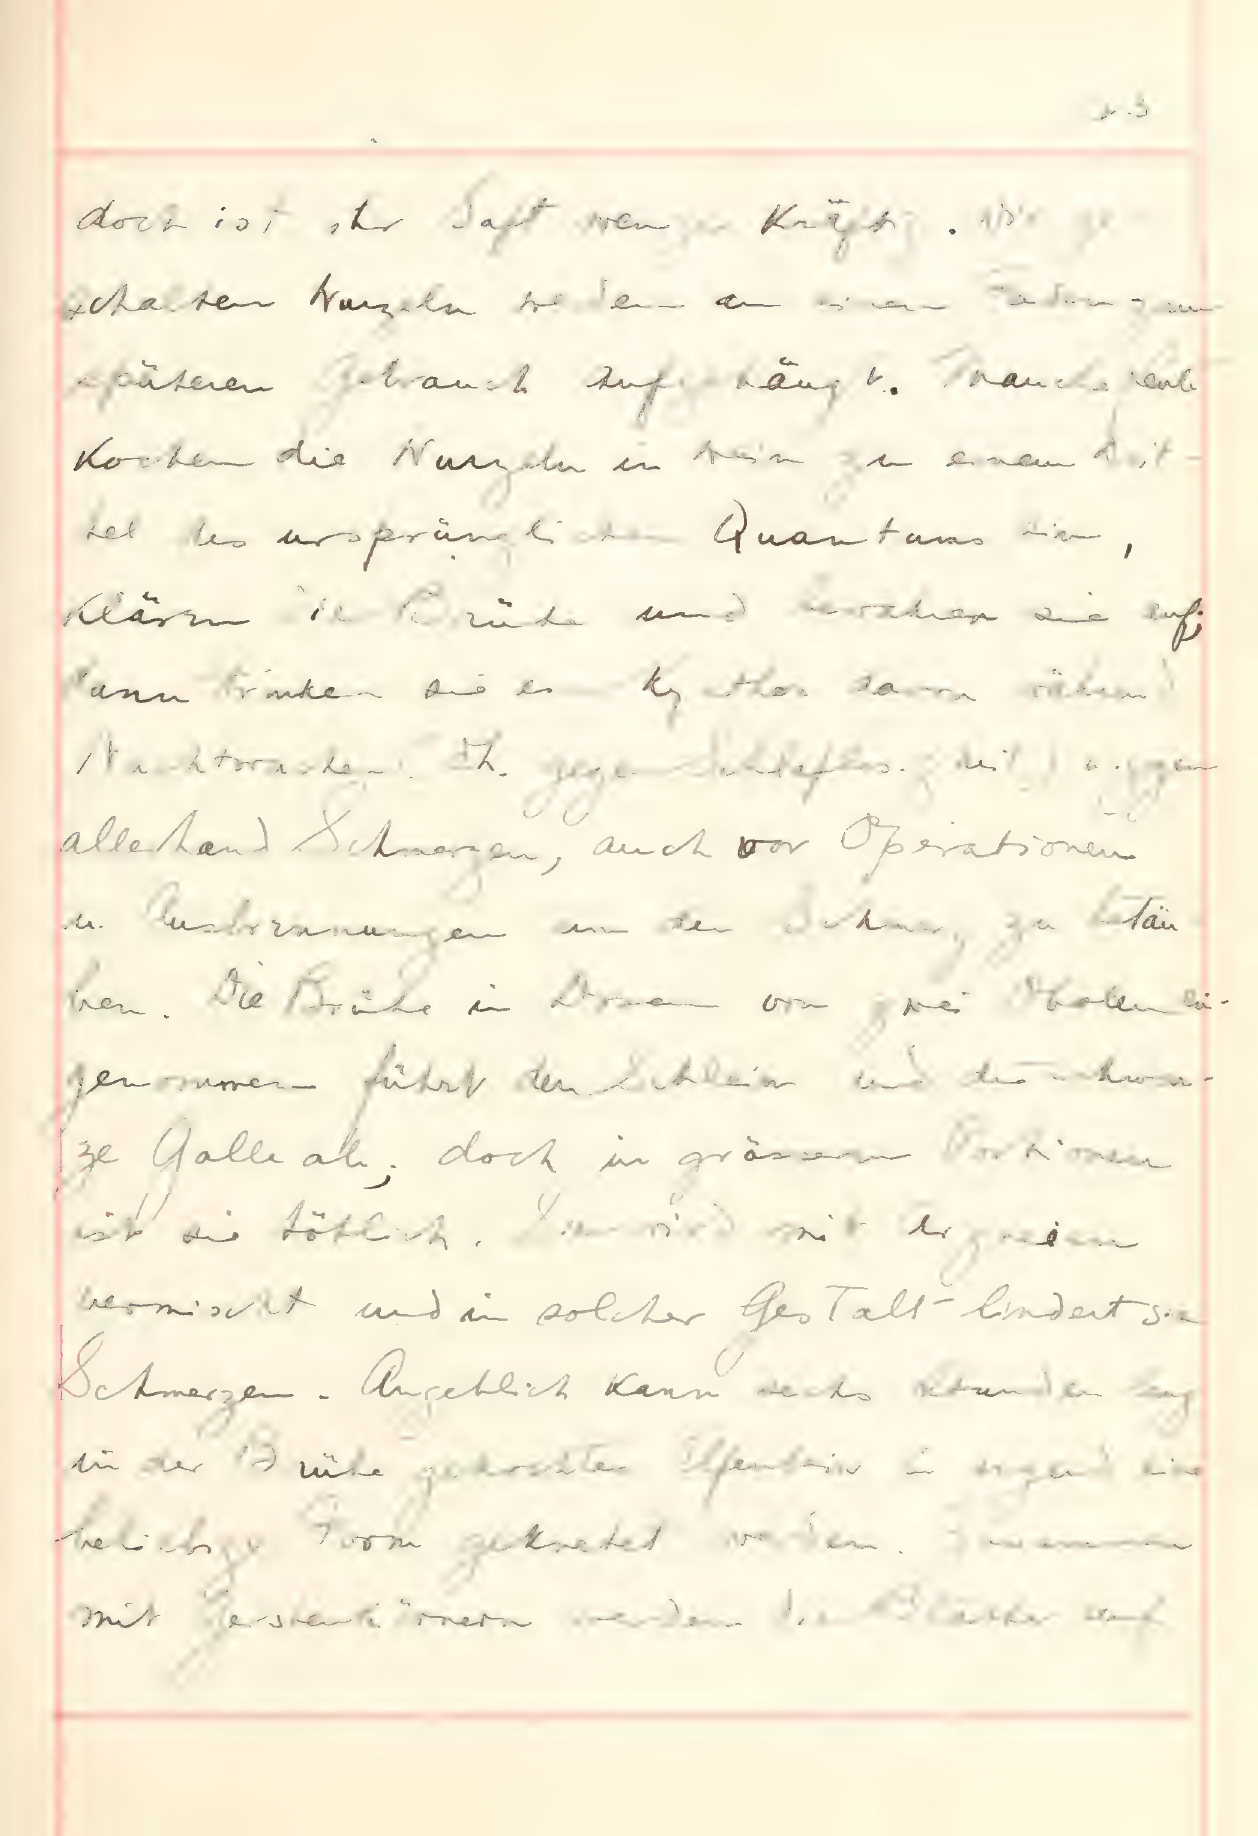 doch ist ihr Saft weniger kräftig. Die ge-
schälten Wurzeln werden an einem Faden zum
späteren Gebrauch aufgehängt. Manche Leute
kochen die Wurzeln in Wein zu einem Drit-
tel des ursprünglichen Quantums ein,
klären die Brühe und bewahren sie auf;
dann trinken sie einen Kyathos davon während
Nachtwachen. Th. gegen Schlaflosigkeit u. gegen
allerhand Schmerzen, auch vor Operationen
u. Ausbrennungen um den Schmerz zu betäu
ben. Die Brühe in Dosen von zwei Obolen ein-
genommen führt den Schleim und die schwar-
ze Galle ab; doch in grösseren Portionen
ist sie tötlich. Sie wird mit Arzneien
vermischt und in solcher Gestalt lindert sie
Schmerzen. Angeblich kann sechs Stunden lang
in der Brühe gekochtes Elfenbein in irgend eine
beliebige Form geknetet werden. Zusammen
mit Gerstenkörnern werden die Blätter auf